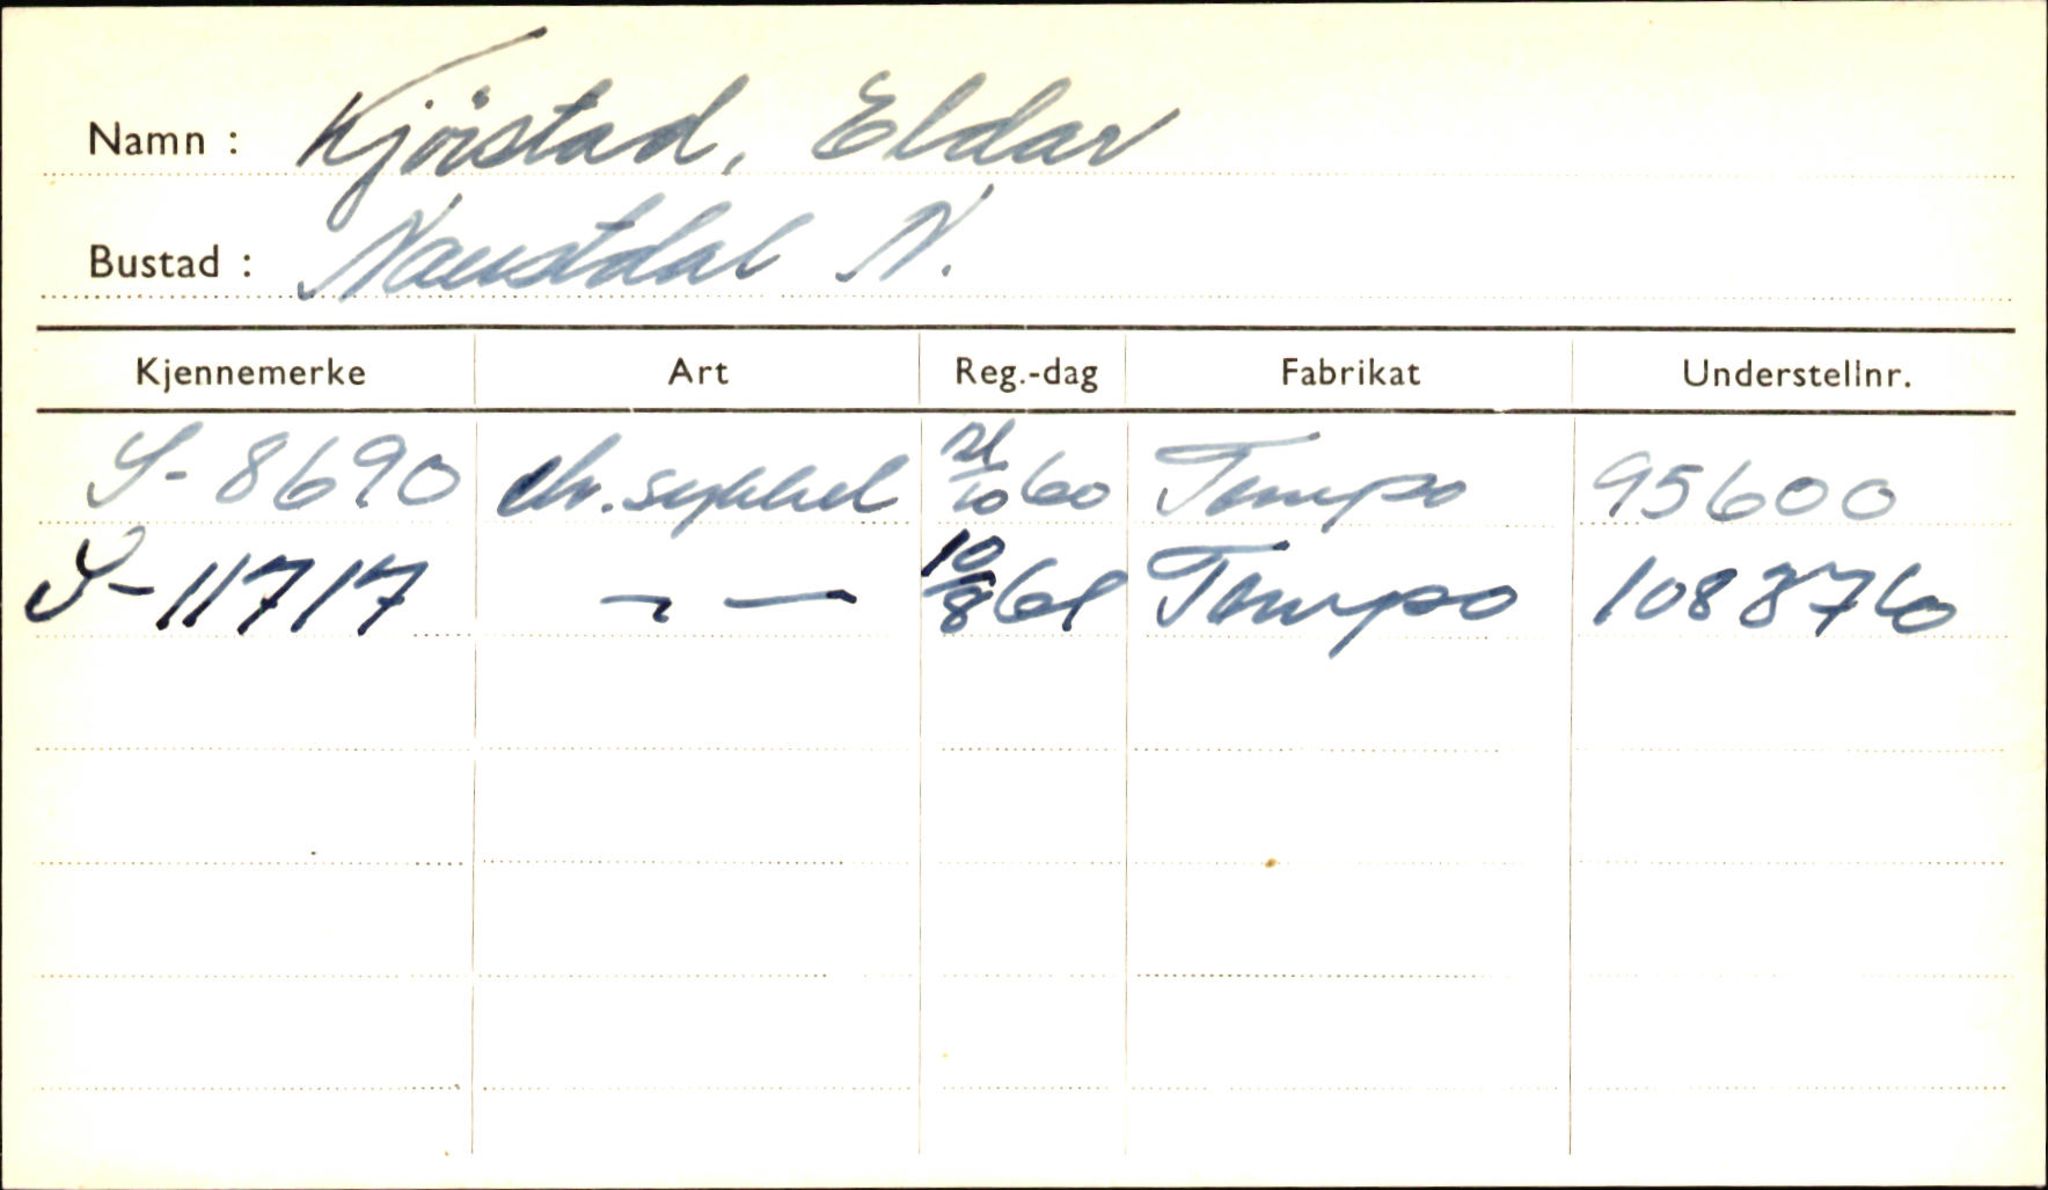 Namn : Kjörstad, Eldar
Bustad : Naustdal N.
Kjennemerke Art Reg.-dag Fabrikat Understellnr.
S-8690 m.sykkel 21/10 60 Tempo 95600
S-11717 - " - 10/8 61 Tempo 108376